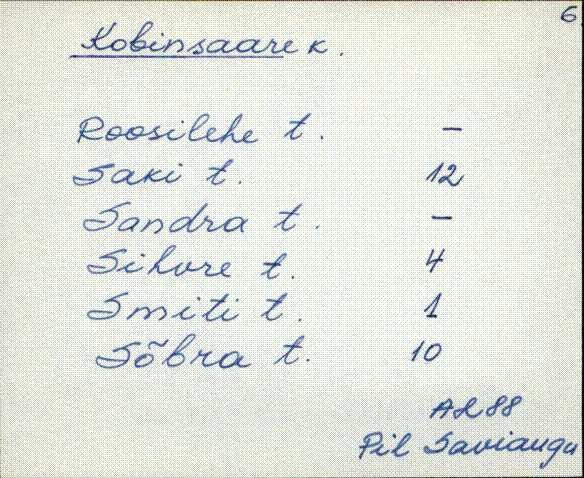 6
Kobinsaare k.
Roosilehe t. –
Saki t. 12
Sandra t. –
Sihvre t. 4
Smiti t. 1
Sõbra t. 10
AL 88
Pil Saviaugu